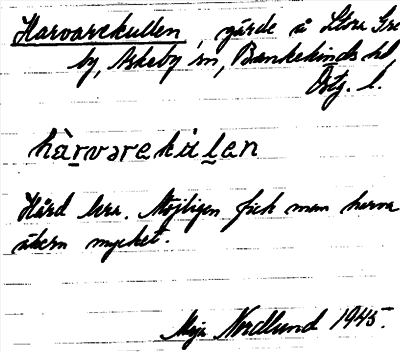 Harvarekullen, gärde å Stora Gre
by, Askeby sn, Bankekinds hd
Östg. l.
hàrvarekùlen
Hård lera. Möjligen fick man harva
åkern mycket.
Maja Nordlund 1945.